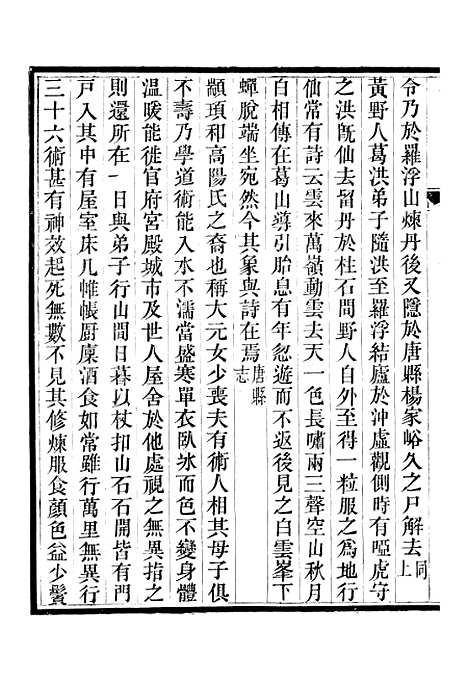 令乃於羅浮山煉丹後又隱於唐縣楊家峪久之尸解去同上
黃野人葛洪弟子隨洪至羅浮結廬於沖虛觀側時有啞虎守
之洪旣仙去留丹於桂石間野人自外至得一粒服之為地行
仙常有詩云雲來萬嶺動雲去天一色長嘯兩三聲空山秋月
白相傳在葛山導引胎息有年忽遊而不返後見之白雲峯下
蟬脫端坐宛然今其象與詩在焉唐縣志
顓頊和高陽氏之裔也稱大元女少喪夫有術人相其母子俱
不壽乃學道術能入水不濡當盛寒單衣臥冰而色不變身體
溫暖能徙官府宮殿城市及世人屋舍於他處視之無異指之
則還所在一日與弟子行山間日暮以杖扣山石石開皆有門
戸入其中有屋室床几帷帳厨廩酒食如常雖行萬里無異行
三十六術甚有神效起死無數不見其修煉服食顏色益少鬢